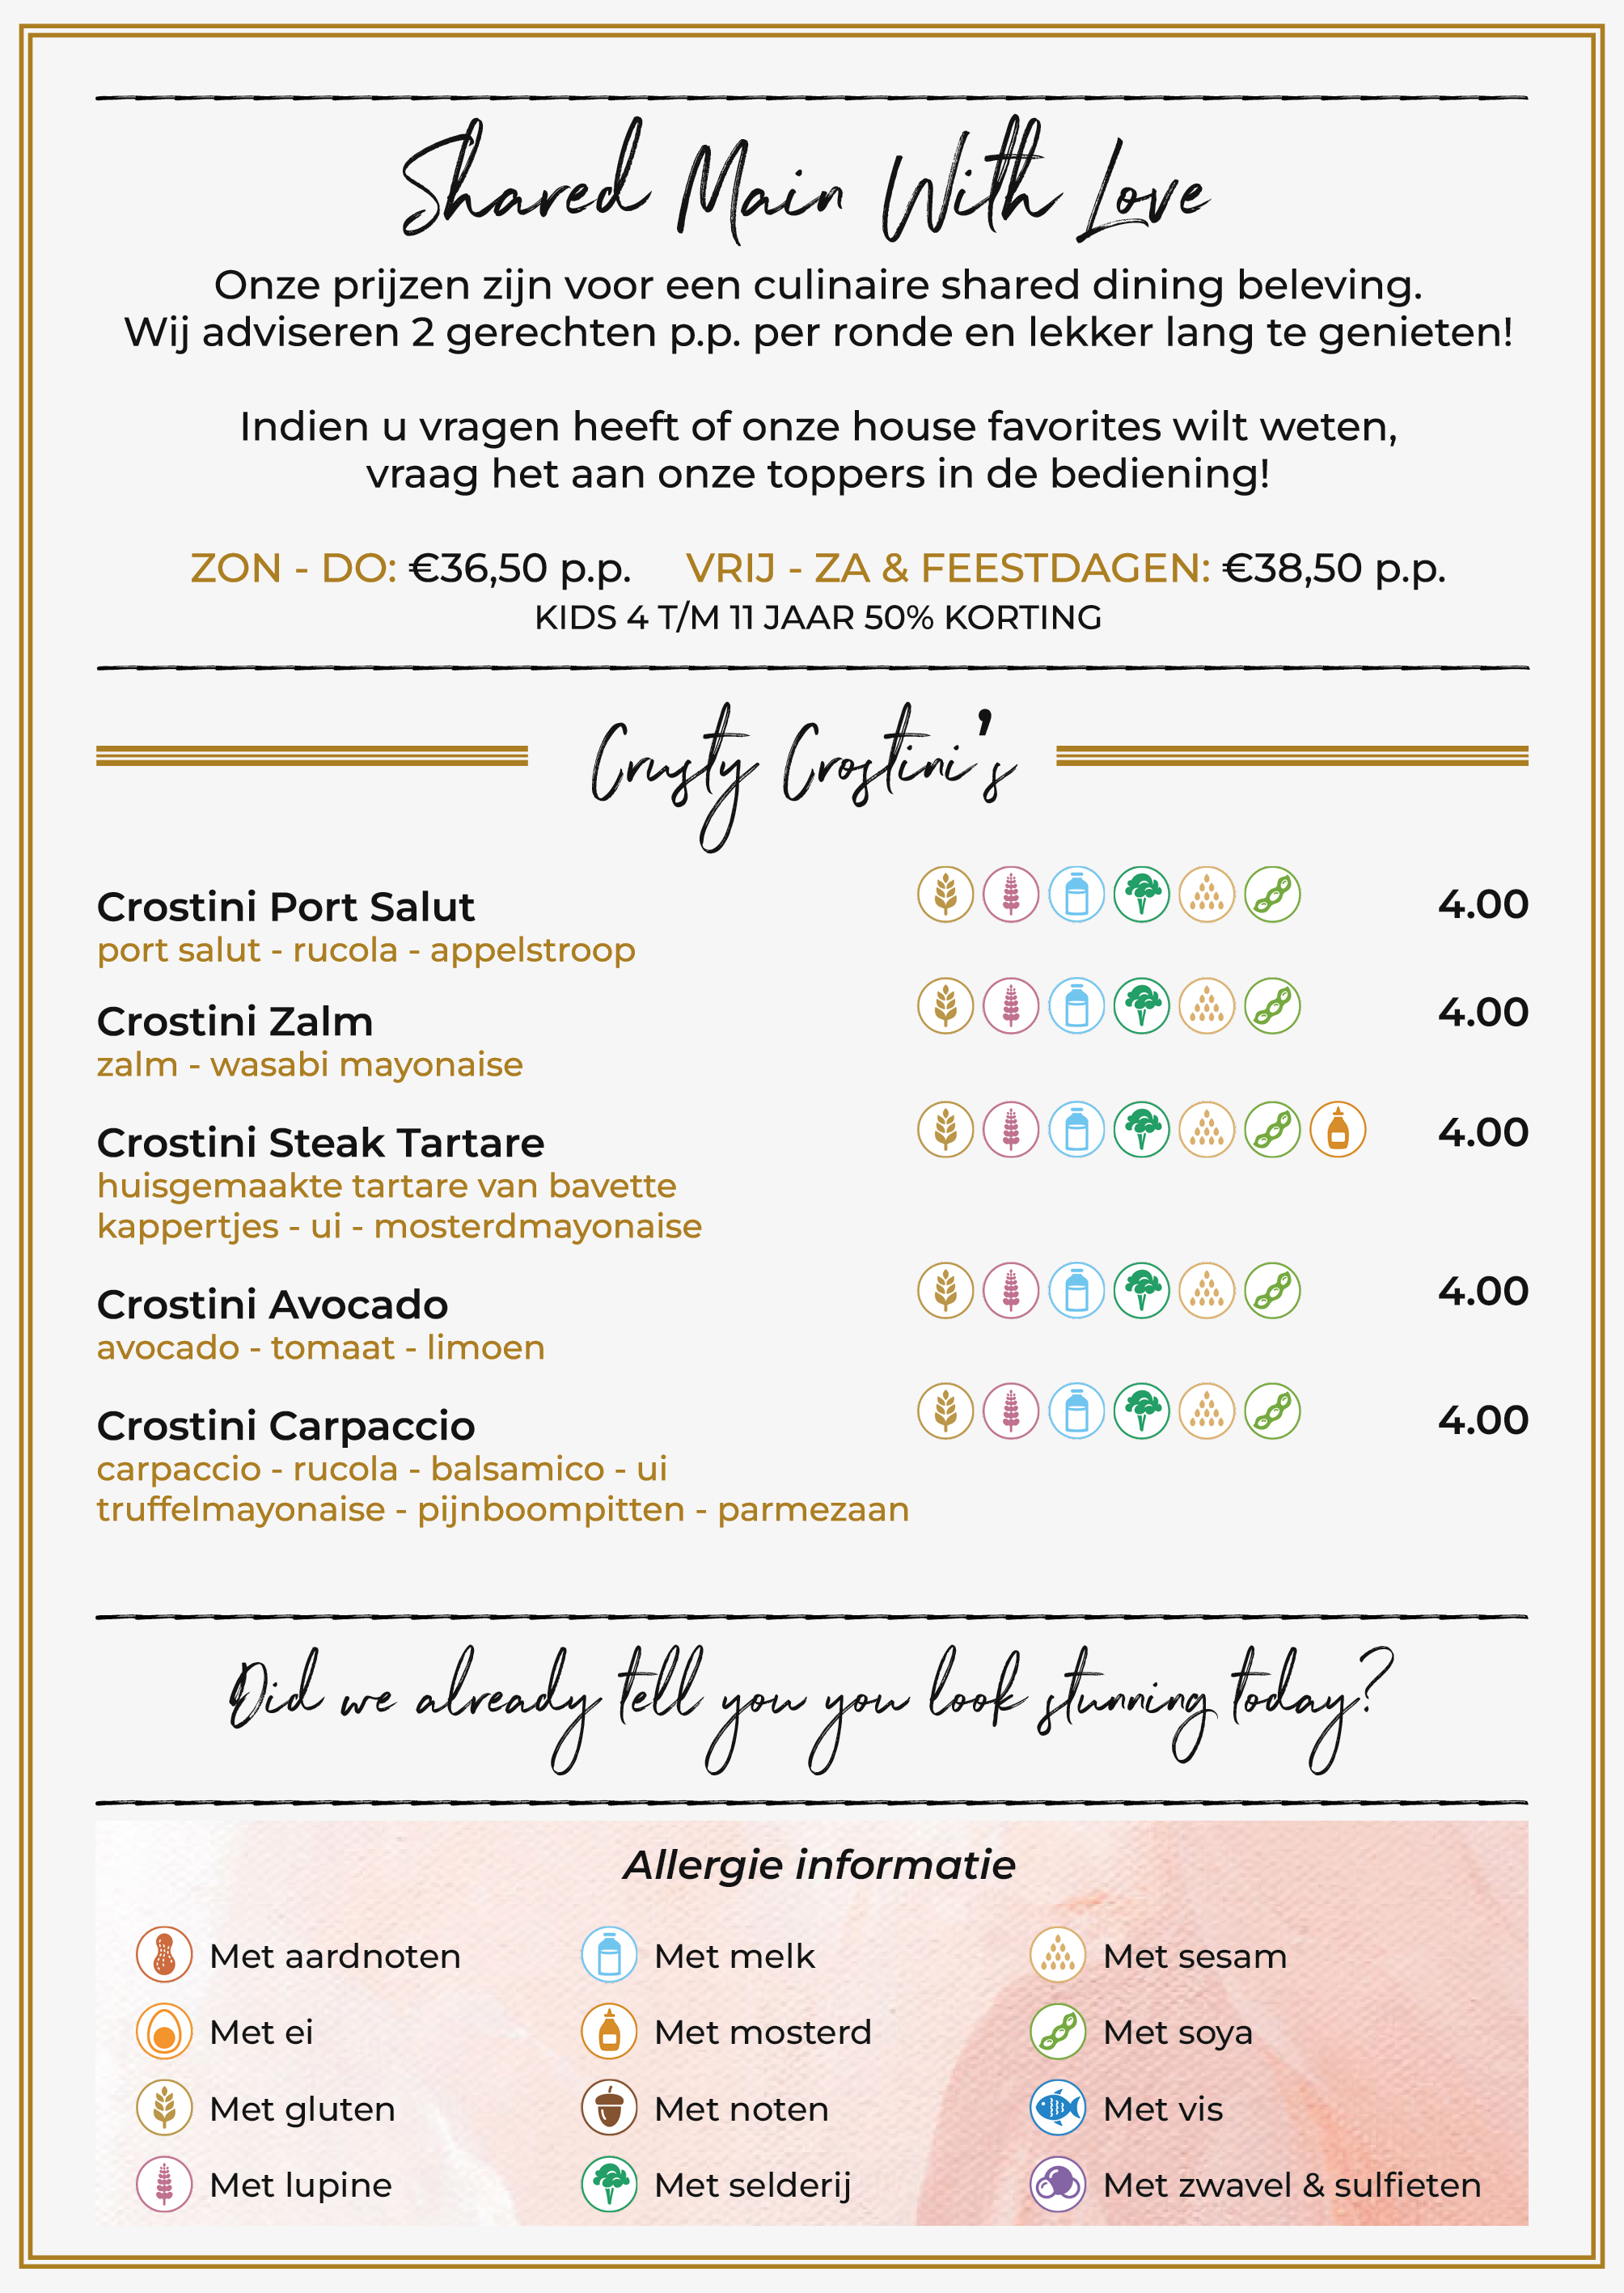 Shared Main With Love
Onze prijzen zijn voor een culinaire shared dining beleving.
Wij adviseren 2 gerechten p.p. per ronde en lekker lang te genieten!
Indien u vragen heeft of onze house favorites wilt weten,
vraag het aan onze toppers in de bediening!
ZON - DO: €36,50 p.p. VRIJ - ZA & FEESTDAGEN: €38,50 p.p.
KIDS 4 T/M 11 JAAR 50% KORTING
Crusty Crostini's
Crostini Port Salut 4.00
port salut - rucola - appelstroop
Crostini Zalm 4.00
zalm - wasabi mayonaise
Crostini Steak Tartare 4.00
huisgemaakte tartare van bavette
kappertjes - ui - mosterdmayonaise
Crostini Avocado 4.00
avocado - tomaat - limoen
Crostini Carpaccio 4.00
carpaccio - rucola - balsamico - ui
truffelmayonaise - pijnboompitten - parmezaan
Did we already tell you you look stunning today?
Allergie informatie
Met aardnoten Met melk Met sesam
Met ei Met mosterd Met soya
Met gluten Met noten Met vis
Met lupine Met selderij Met zwavel & sulfieten